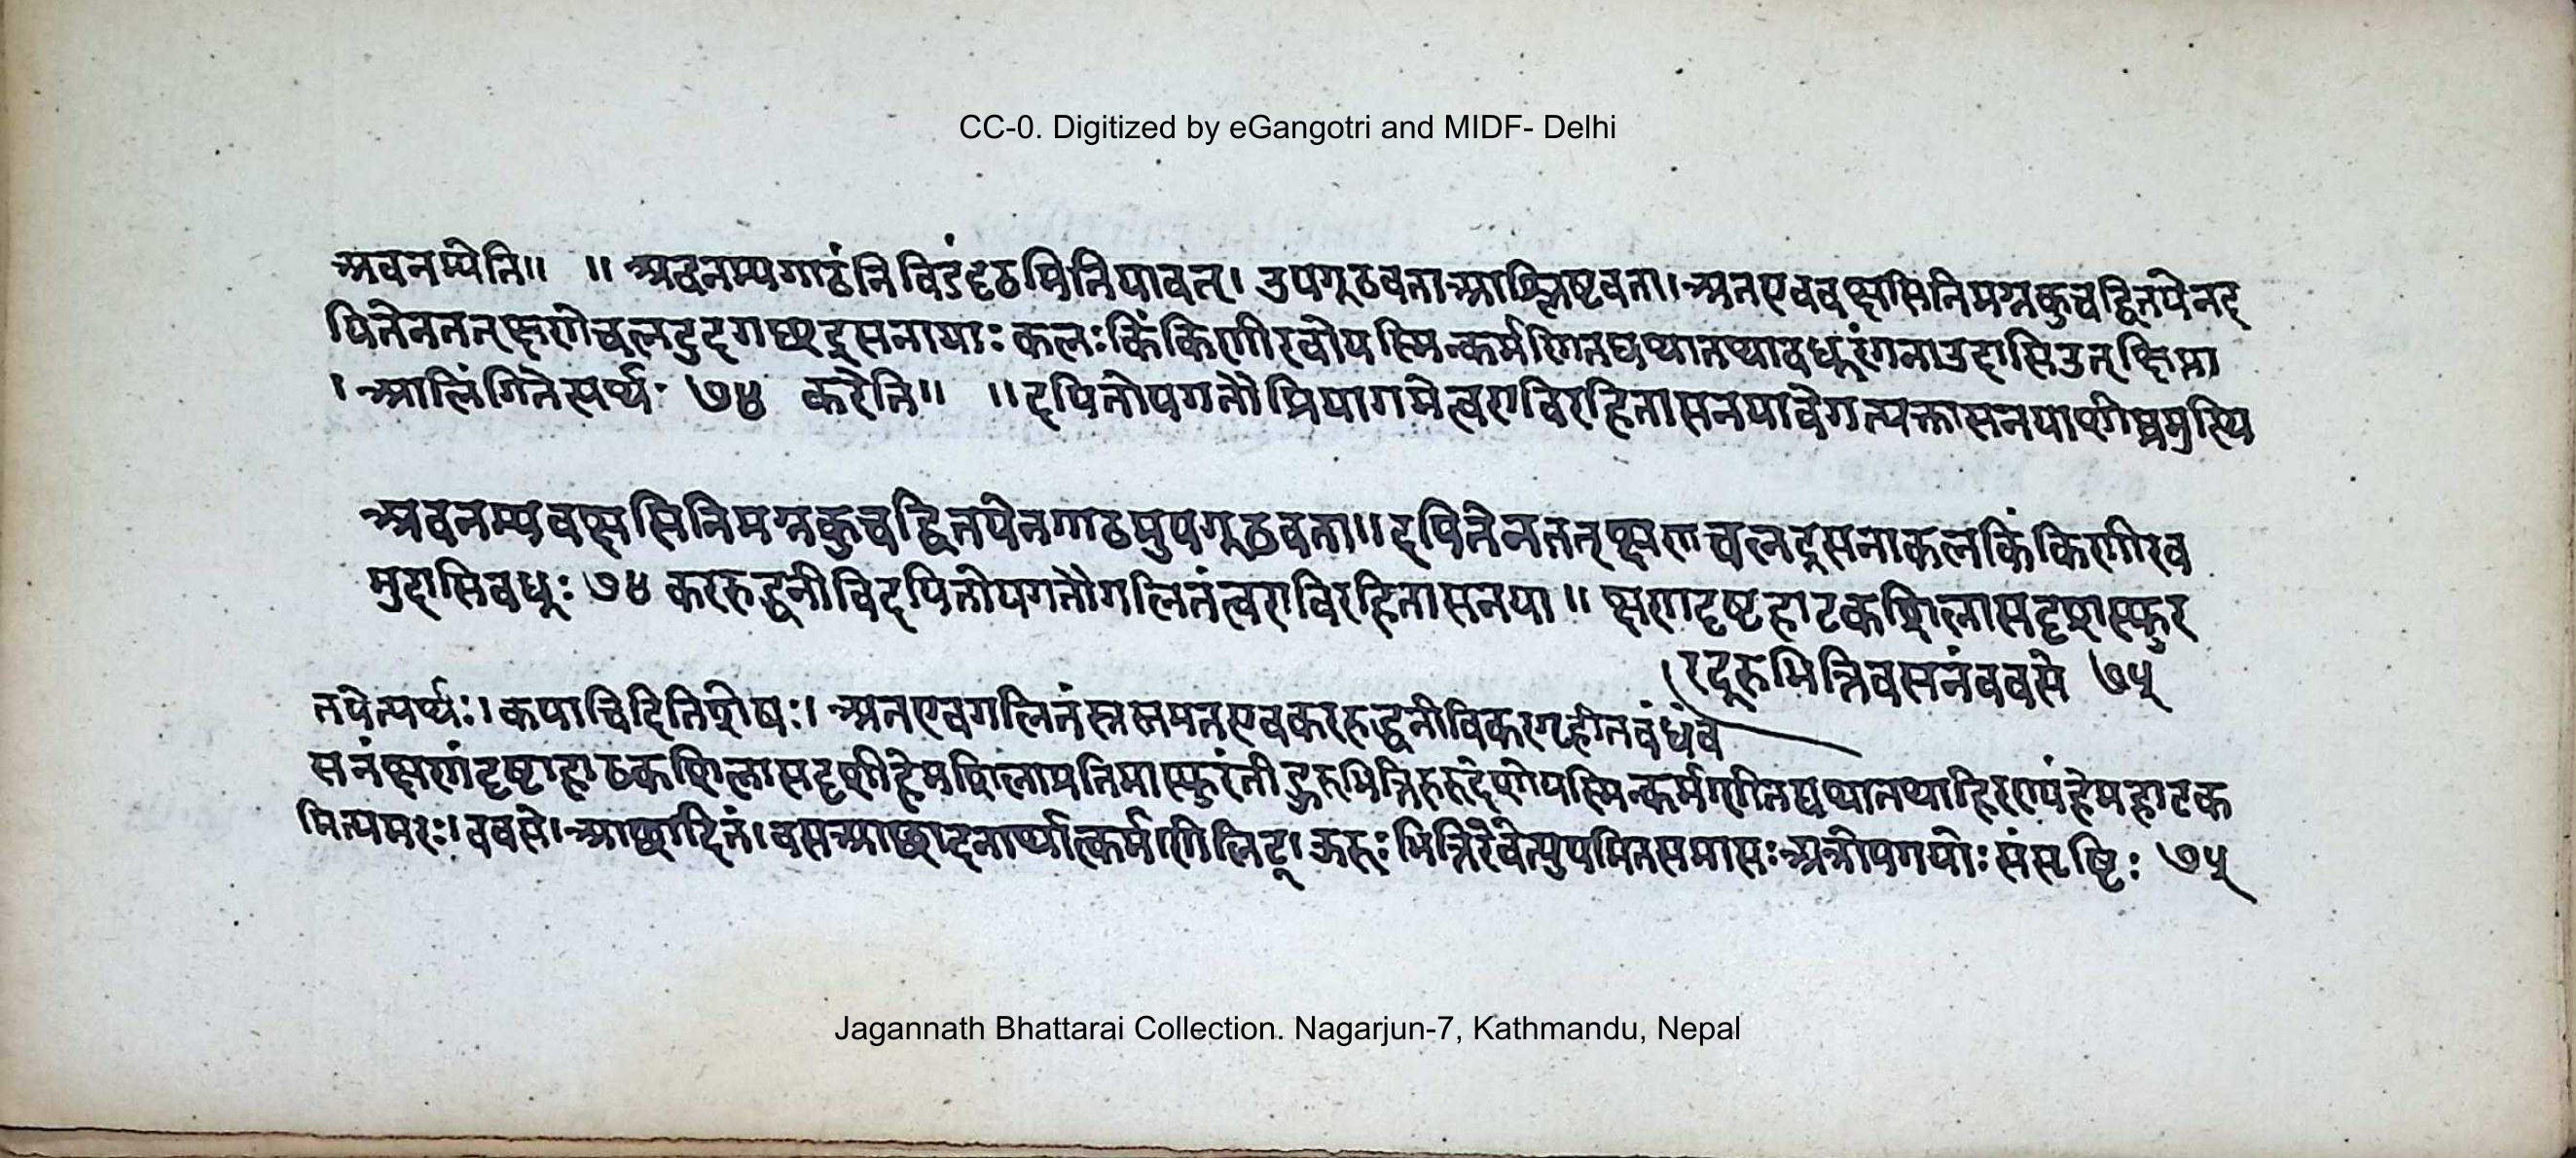 CC-0. Digitized by eGangotri and MIDF- Delhi
अवनम्येति॥ ॥ अवनम्यगाढंनिविडंदृढमितियावत्। उपगूढवताआश्लिष्टवता।अतएववक्षसिनिमग्नकुचद्वितयेनद
यितेनतत्क्षणेचलदुद्गच्छद्रसनायाः कलःकिंकिणीरवोयस्मिन्कर्मणितद्यथातथावधूरंगनाउदासिउत्क्षिप्ता
।आलिंगितेत्यर्थः ७४ करेति॥ ॥दयितोपगतौप्रियागमेत्वराविरहितासनयावेगत्यक्तासनयाशीघ्रमुत्थि
अवनम्यवक्षसिनिमग्नकुचद्वितयेनगाढमुपगूढवता॥दयितेनतत्क्षणचलद्रसनाकलकिंकिणीरव
मुदासिवधूः ७४ कररुद्धनीविदयितोपगतौगलितंत्वराविरहितासनया॥ क्षणदृष्टहाटकशिलासदृशस्फुर
(रदूरुभित्तिवसनंववसे ७५
तयेत्यर्थः। कयाचिदितिशेषः। अतएवगलितंस्रस्तमतएवकररुद्धनीविकरगृहीतबंधंव
सनंक्षणंदृष्टाहाटकशिलासदृशीहेमशिलाप्रतिमास्फुरंती ऊरुभित्तिरुरुदेशोयस्मिन्कर्मणीतद्यथातथाहिरण्यंहेमहाटक
मित्यमरः।ववसे।आच्छादितं।वसआच्छादनार्थात्कर्मणिलिट्। ऊरुःभित्तिरेवेत्युपमितसमासःअत्रोपमयोःसंसृष्टिः ७५
Jagannath Bhattarai Collection. Nagarjun-7, Kathmandu, Nepal